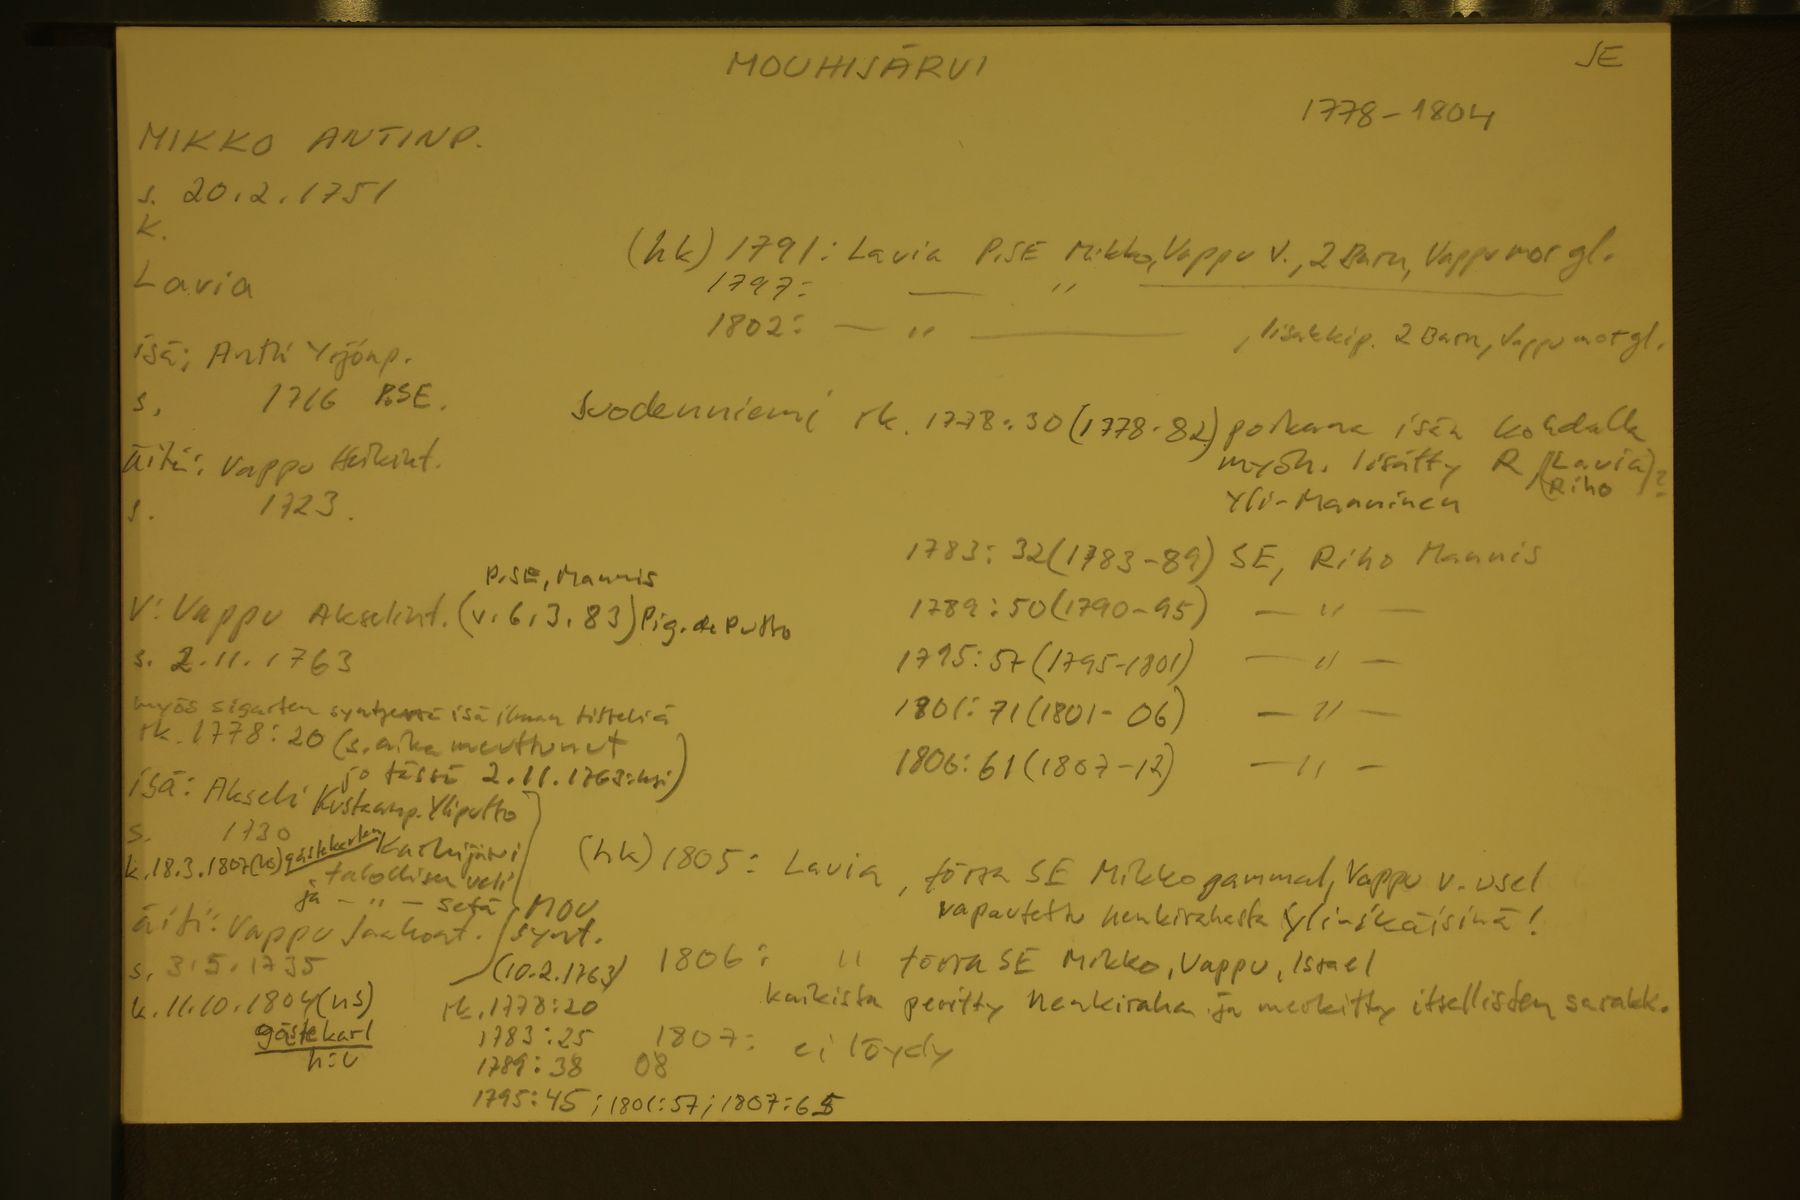 MOUHIJÄRVI
SE
1778-1804
MIKKO ANTINP.
s. 20.2.1751
k.
Lavia
isä: Antti Yrjönp.
s. 1716 P.SE.
äiti: Vappu Heikint.
s. 1723.
P.SE, Mannis
V: Vappu Akselint. (v. 6.3.83) Pig. de Putto
s. 2.11.1763
myös sigarten synt isä ilman titteliä
rk. 1778:20 (s.aika muuttunut
jo tässä 2.11.1763:ksi)
isä: Akseli Kustaanp. Yliputto
s. 1730 Karhijärvi
k. 18.3.1807 (ks) gästekarlen talollisen veli
ja - " - setä
äiti: Vappu Jaakont.
MOU
synt.
(10.2.1763)
s. 3.5.1735
k. 11.10.1804 (ns)
gästekarl
h:u
rk. 1778:20
1783:25
1789:38
1795:45; 1801:57; 1807:65
(hk) 1791: Lavia P.SE Mikko, Vappu v., 2 Barn, Vappu mor gl.
1797: — " —
1802: — " — , Iisakkip. 2 Barn, Vappu mor gl.
Suodenniemi rk. 1778:30 (1778-82) poikana isän kohdalla
myöh. lisätty R (Lavia)?
Riho
Yli-Manninen
1783: 32 (1783-89) SE, Riho Mannis
1789: 50 (1790-95) — " —
1795: 57 (1795-1801) — " —
1801: 71 (1801-06) — " —
1806: 61 (1807-12) — " —
(hk) 1805: Lavia, förra SE Mikko gammal, Vappu v. usel
vapautettu henkirahasta yli-ikäisinä!
1806: " förra SE Mikko, Vappu, Israel
kaikista peritty henkiraha ja merkitty itsellisten sarakk.
1807: ei löydy
08